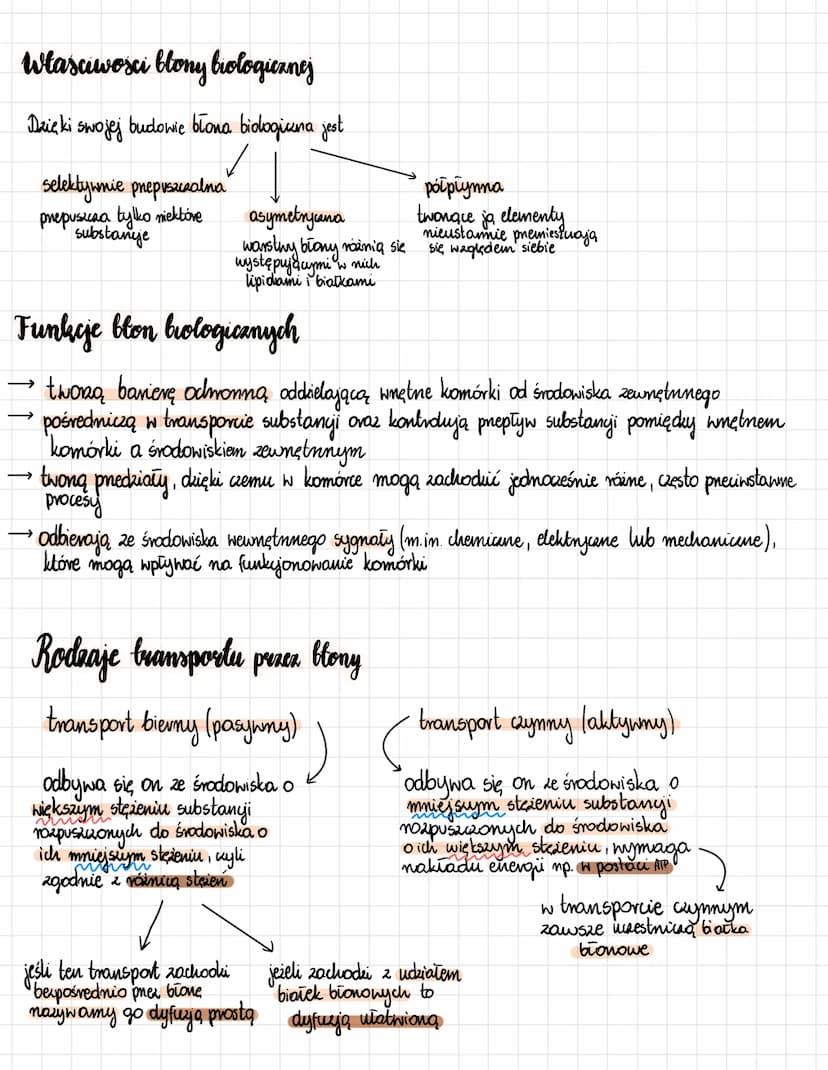 Właściwości błony biologicznej
Dzięki swojej budowie błona biologiczna jest
selektywnie przepuszczalna
przepuszcza tylko niektóre
substancje
asymetryczna
warstwy błony różnią się
występującymi w nich
lipidami i białkami
półpłynna
tworzące ją elementy
nieustannie przemieszczają
się względem siebie
Funkcje błon biologicznych
→ tworzą barierę ochronną oddzielającą wnętrze komórki od środowiska zewnętrznego
→ pośredniczą w transporcie substancji oraz kontrolują przepływ substancji pomiędzy wnętrzem
komórki a środowiskiem zewnętrznym
→ tworzą przedziały, dzięki czemu w komórce mogą zachodzić jednocześnie różne, często przeciwstawne
procesy
→ odbierają ze środowiska wewnętrznego sygnały (m.in. chemiczne, elektryczne lub mechaniczne),
które mogą wpływać na funkcjonowanie komórki
Rodzaje transportu przez błony
transport bierny (pasywny)
odbywa się on ze środowiska o
większym stężeniu substancji
rozpuszczonych do środowiska o
ich mniejszym stężeniu, czyli
zgodnie z różnicą stężeń
transport czynny (aktywny)
odbywa się on ze środowiska o
mniejszym stężeniu substancji
rozpuszczonych do środowiska
o ich większym stężeniu, wymaga
nakładu energii np. w postaci ATP
w transporcie czynnym
zawsze uczestniczą białka
błonowe
jeśli ten transport zachodzi
bezpośrednio przez błonę
nazywamy go dyfuzją prostą
jeżeli zachodzi z udziałem
białek błonowych to
dyfuzją ułatwioną